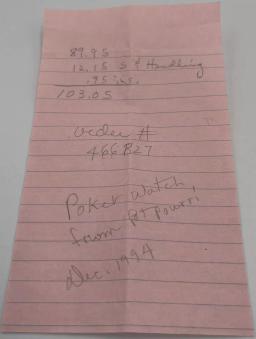 89.95
12.15 S & Handling
.95 ins.
103.05
Order #
466827
Poket Watch
from Potpourri,
Dec. 1994